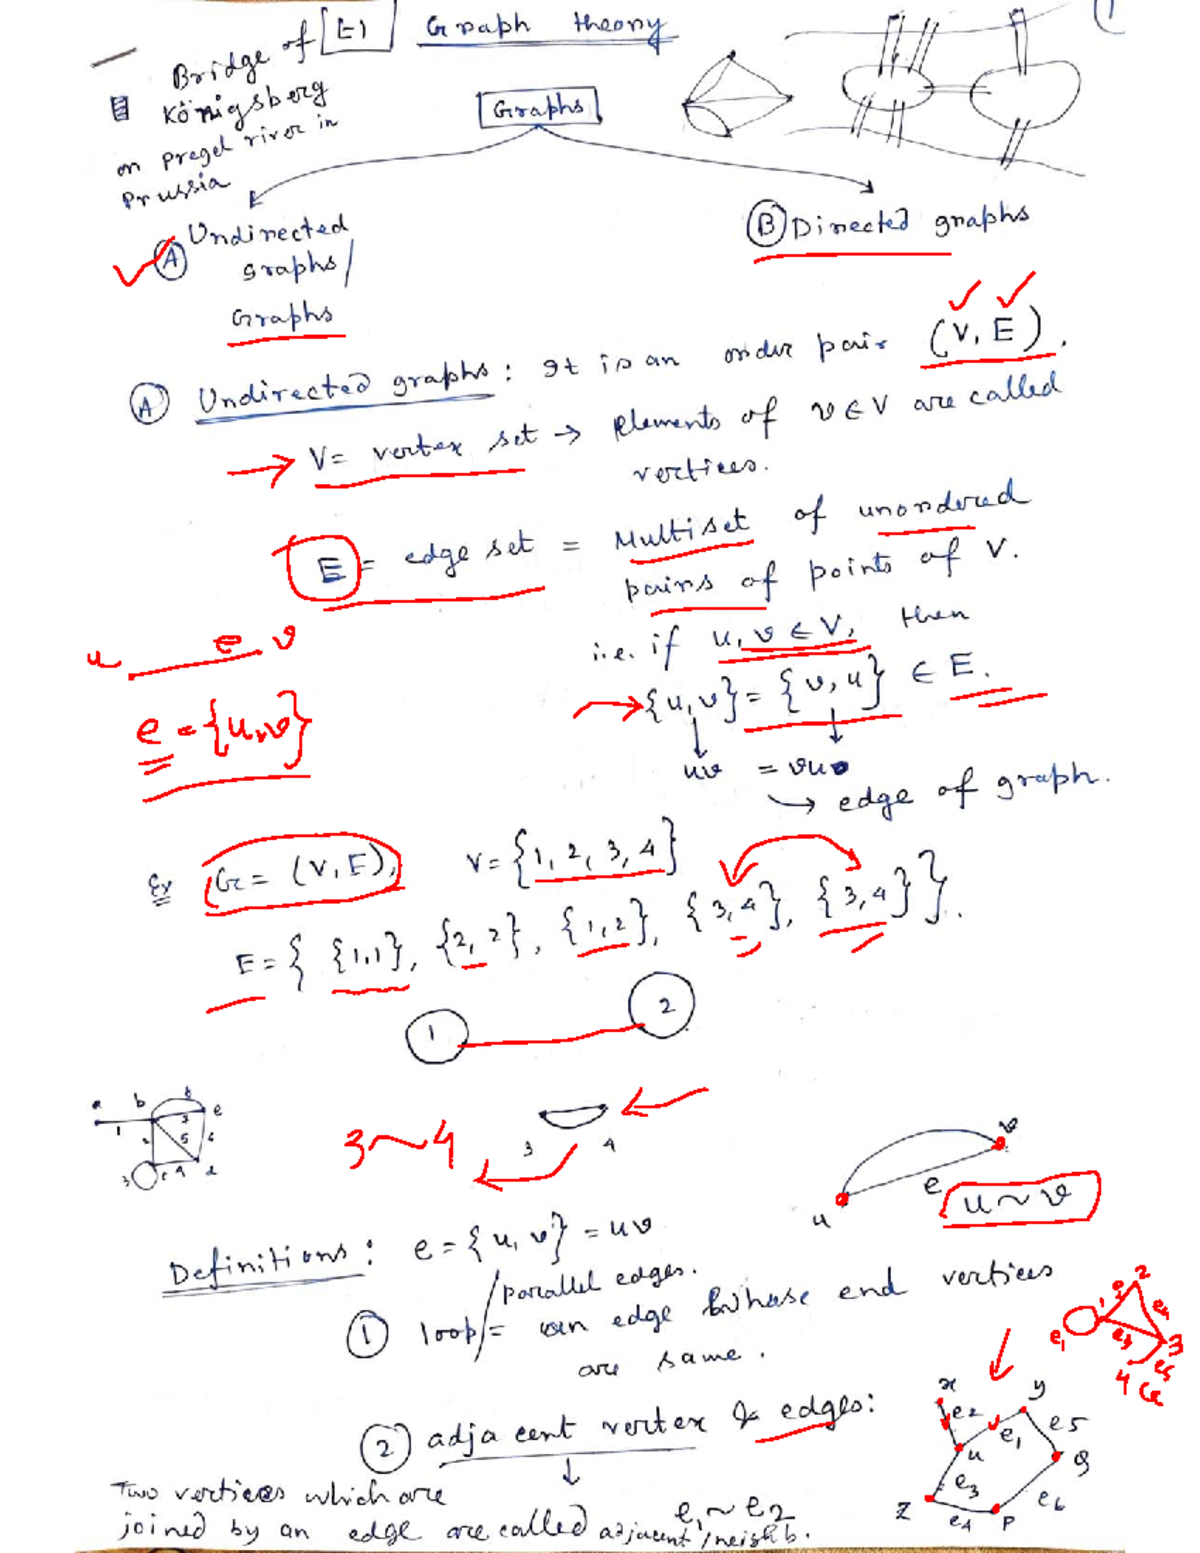 Bridge of [E] Graph theory
Königsberg
on pregel river in
Prussia
Graphs
(A) Undirected
graphs/
Graphs
(B) Directed graphs
(A) Undirected graphs: It is an order pair (V, E).
→ V = vertex set → Elements of v ∈ V are called
vertices.
E = edge set = Multiset of unordered
pairs of points of V.
u e v
i.e. if u, v ∈ V, then
e = {u,v}
→ {u,v} = {v,u} ∈ E.
uv = vu
→ edge of graph.
Ex G = (V, E), V = {1, 2, 3, 4}
E = { {1,1}, {2,2}, {1,2}, {3,4}, {3,4} }.
1 2
a b e
1 5 6
3 c 4 d
3~4
3 4
u e v
u ~ v
Definitions: e = {u, v} = uv
/parallel edges.
(1) loop/= an edge whose end vertices
are same.
e1 1 2 e3 e4 3 e5 4
(2) adjacent vertex & edges:
Two vertices which are
joined by an edge are called adjacent/neighb.
e1 ~ e2
x y e2 e1 e5 u Q e3 e6 z e4 P